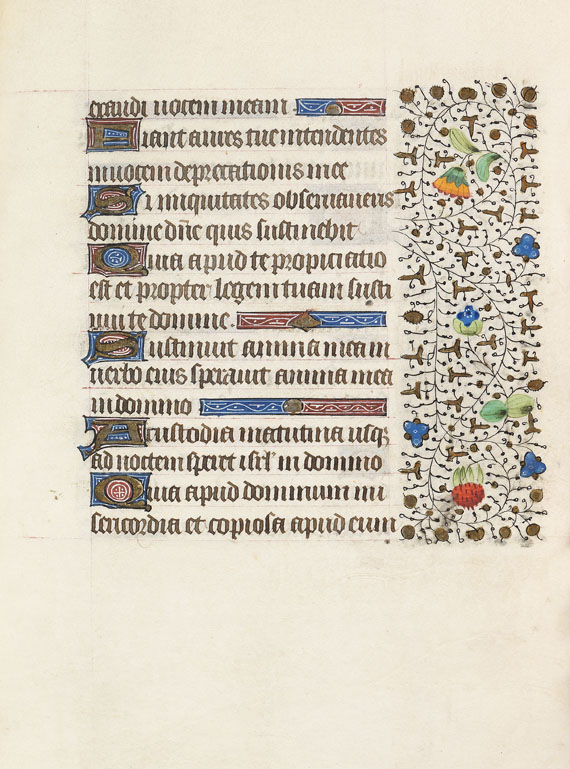 exaudi vocem meam
Fiant aures tue intendentes
in vocem deprecationis mee
Si iniquitates observaveris
domine dñe quis sustinebit
Quia apud te propiciatio
est et propter legem tuam susti
nui te domine
Sustinuit anima mea in
verbo eius speravit anima mea
in domino
A custodia matutina usq3
ad noctem speret isrl' in domino
Quia apud dominum mi
sericordia et copiosa apud eum